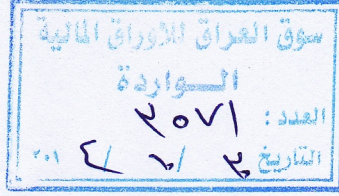 سوق العراق للاوراق المالية
الـــواردة
العدد : ٣٥٧١
التاريخ ٣ / ٧ / ٢٠١٤